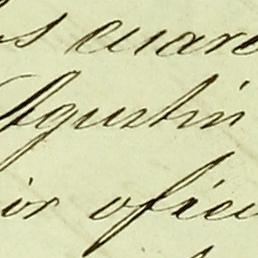 os cuare
Agustin
ir oficu